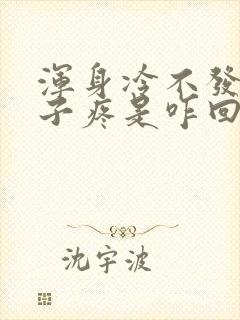 渾身冷不發
子疼是咋回
沈宇波